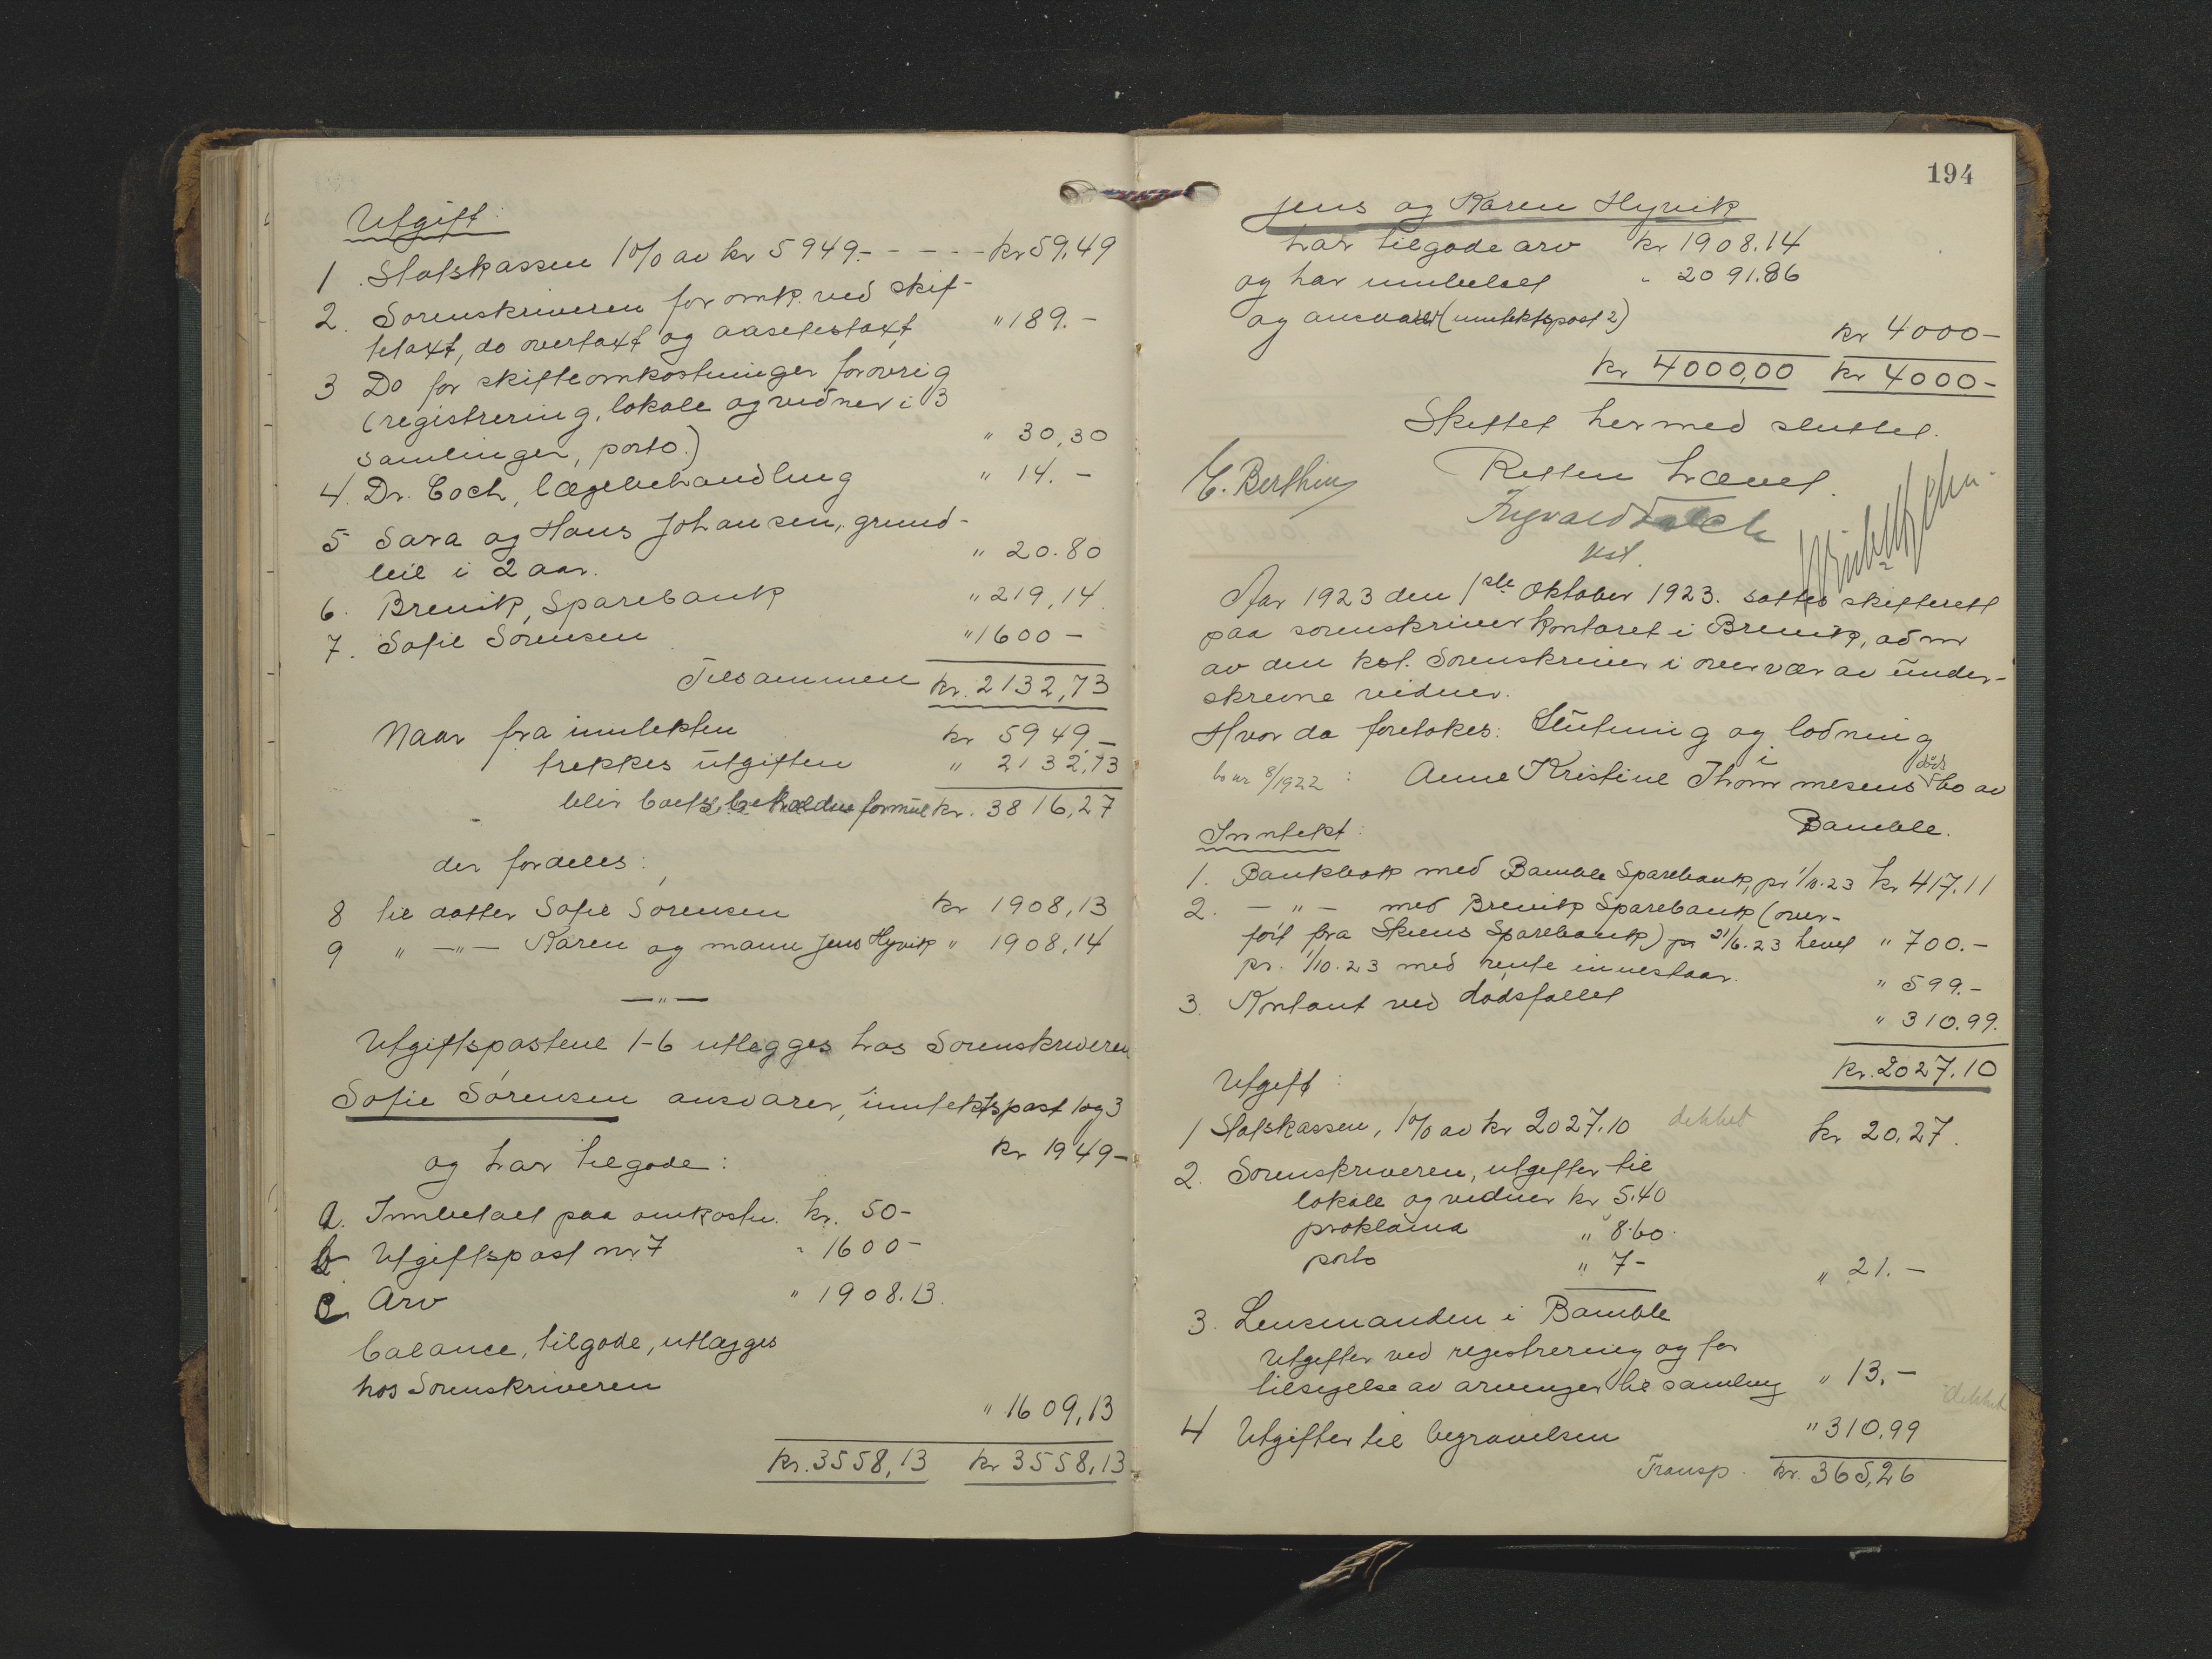 Utgift:
1. Statskassen 1% av kr 5949.- - - - - kr 59,49
2. Sorenskriveren for omk. ved skif-
tetaxt, do overtaxt og aasetestaxt, " 189.-
3 Do for skifteomkostninger forøvrig
(registrering, lokale og vidner i 3
samlinger, porto.) " 30,30
4. Dr. Coch, lægebehandling " 14.-
5 Sara og Hans Johansen, grund-
leie i 2 aar. " 20.80
6. Brevik Sparebank " 219,14
7. Sofie Sørensen " 1600-
Tilsammen kr. 2132,73
Naar fra inntekten kr 5949.-
trekkes utgiften " 2132,73
blir boets beholdne formue kr. 3816,27
der fordeles:
8 til datter Sofie Sørensen kr 1908,13
9 " -"- Karen og mann Jens Hyvik " 1908,14
-"-
Utgiftspostene 1-6 utlegges hos Sorenskriveren
Sofie Sørensen ansvarer, inntektspost 1 og 3
kr 1949-
og har tilgode:
a. Innbetalt paa omkostn. kr. 50-
b Utgiftspost nr 7 " 1600-
c Arv " 1908.13.
balance, tilgode, utlægges
hos Sorenskriveren
" 1609,13
kr. 3558,13 kr 3558,13
194
Jens og Karen Hyvik
har tilgode arv kr 1908.14
og har innbetalt " 2091.86
og ansvarer (inntektspost 2)
kr 4000-
kr 4000,00 kr 4000-
Skiftet hermed sluttet.
Retten hævet.
E. Berthin
Ingvald Falch
kst.
Aar 1923 den 1ste Oktober 1923. sattes skifterett
paa sorenskriverkontoret i Brevik, adm
av den kst. Sorenskriver i overvær av under-
skrevne vidner.
Hvor da foretokes: Slutning og lodning
i
bo nr 8/1922: Anne Kristine Thommesens døds bo av
Bamble.
Inntekt:
1. Bankbok med Bamble Sparebank, pr 1/10.23 kr 417.11
2. -"- med Brevik Sparebank (over-
ført fra Skiens Sparebank) pr 21/6.23 hevet " 700.-
pr. 1/10.23 med rente innestaar. " 599.-
3. Kontant ved dødsfallet " 310.99.
kr. 2027.10
Utgift:
1 Statskassen, 1% av kr 2027.10 dekket kr 20,27.
2. Sorenskriveren, utgifter til
lokale og vidner kr 5.40
proklama " 8.60.
porto " 7- " 21.-
3. Lensmanden i Bamble
Utgifter ved registrering og for
tilsigelse av arvinger til samling " 13.-
dekket
4 Utgifter til begravelsen " 310,99
Transp. kr. 365,26